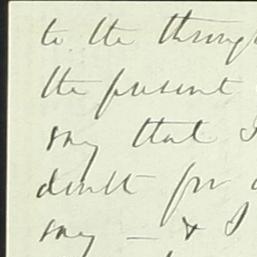 to the through
the present
say that I
doubt for
say — & I